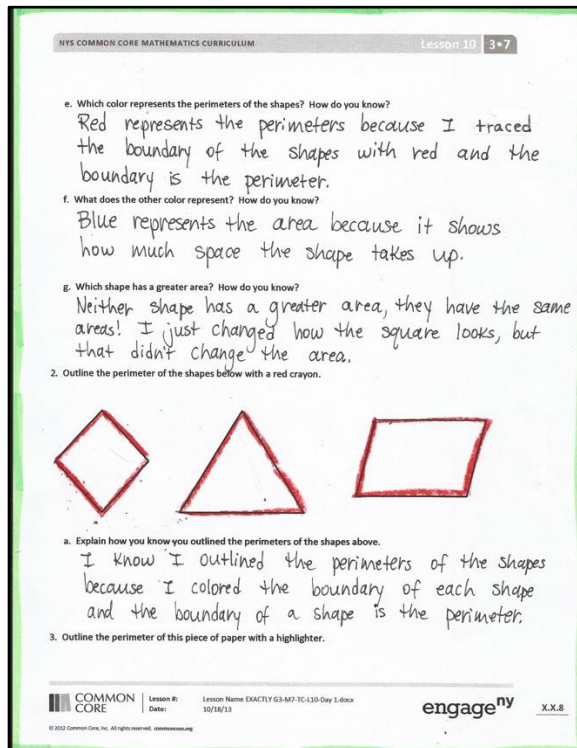 NYS COMMON CORE MATHEMATICS CURRICULUM
Lesson 10 3•7
e. Which color represents the perimeters of the shapes? How do you know?
Red represents the perimeters because I traced
the boundary of the shapes with red and the
boundary is the perimeter.
f. What does the other color represent? How do you know?
Blue represents the area because it shows
how much space the shape takes up.
g. Which shape has a greater area? How do you know?
Neither shape has a greater area, they have the same
areas! I just changed how the square looks, but
that didn't change the area.
2. Outline the perimeter of the shapes below with a red crayon.
a. Explain how you know you outlined the perimeters of the shapes above.
I know I outlined the perimeters of the shapes
because I colored the boundary of each shape
and the boundary of a shape is the perimeter.
3. Outline the perimeter of this piece of paper with a highlighter.
COMMON CORE
Lesson #: Lesson Name EXACTLY G3-M7-TC-L10-Day 1.docx
Date: 10/18/13
engageny
X.X.8
© 2012 Common Core, Inc. All rights reserved. commoncore.org